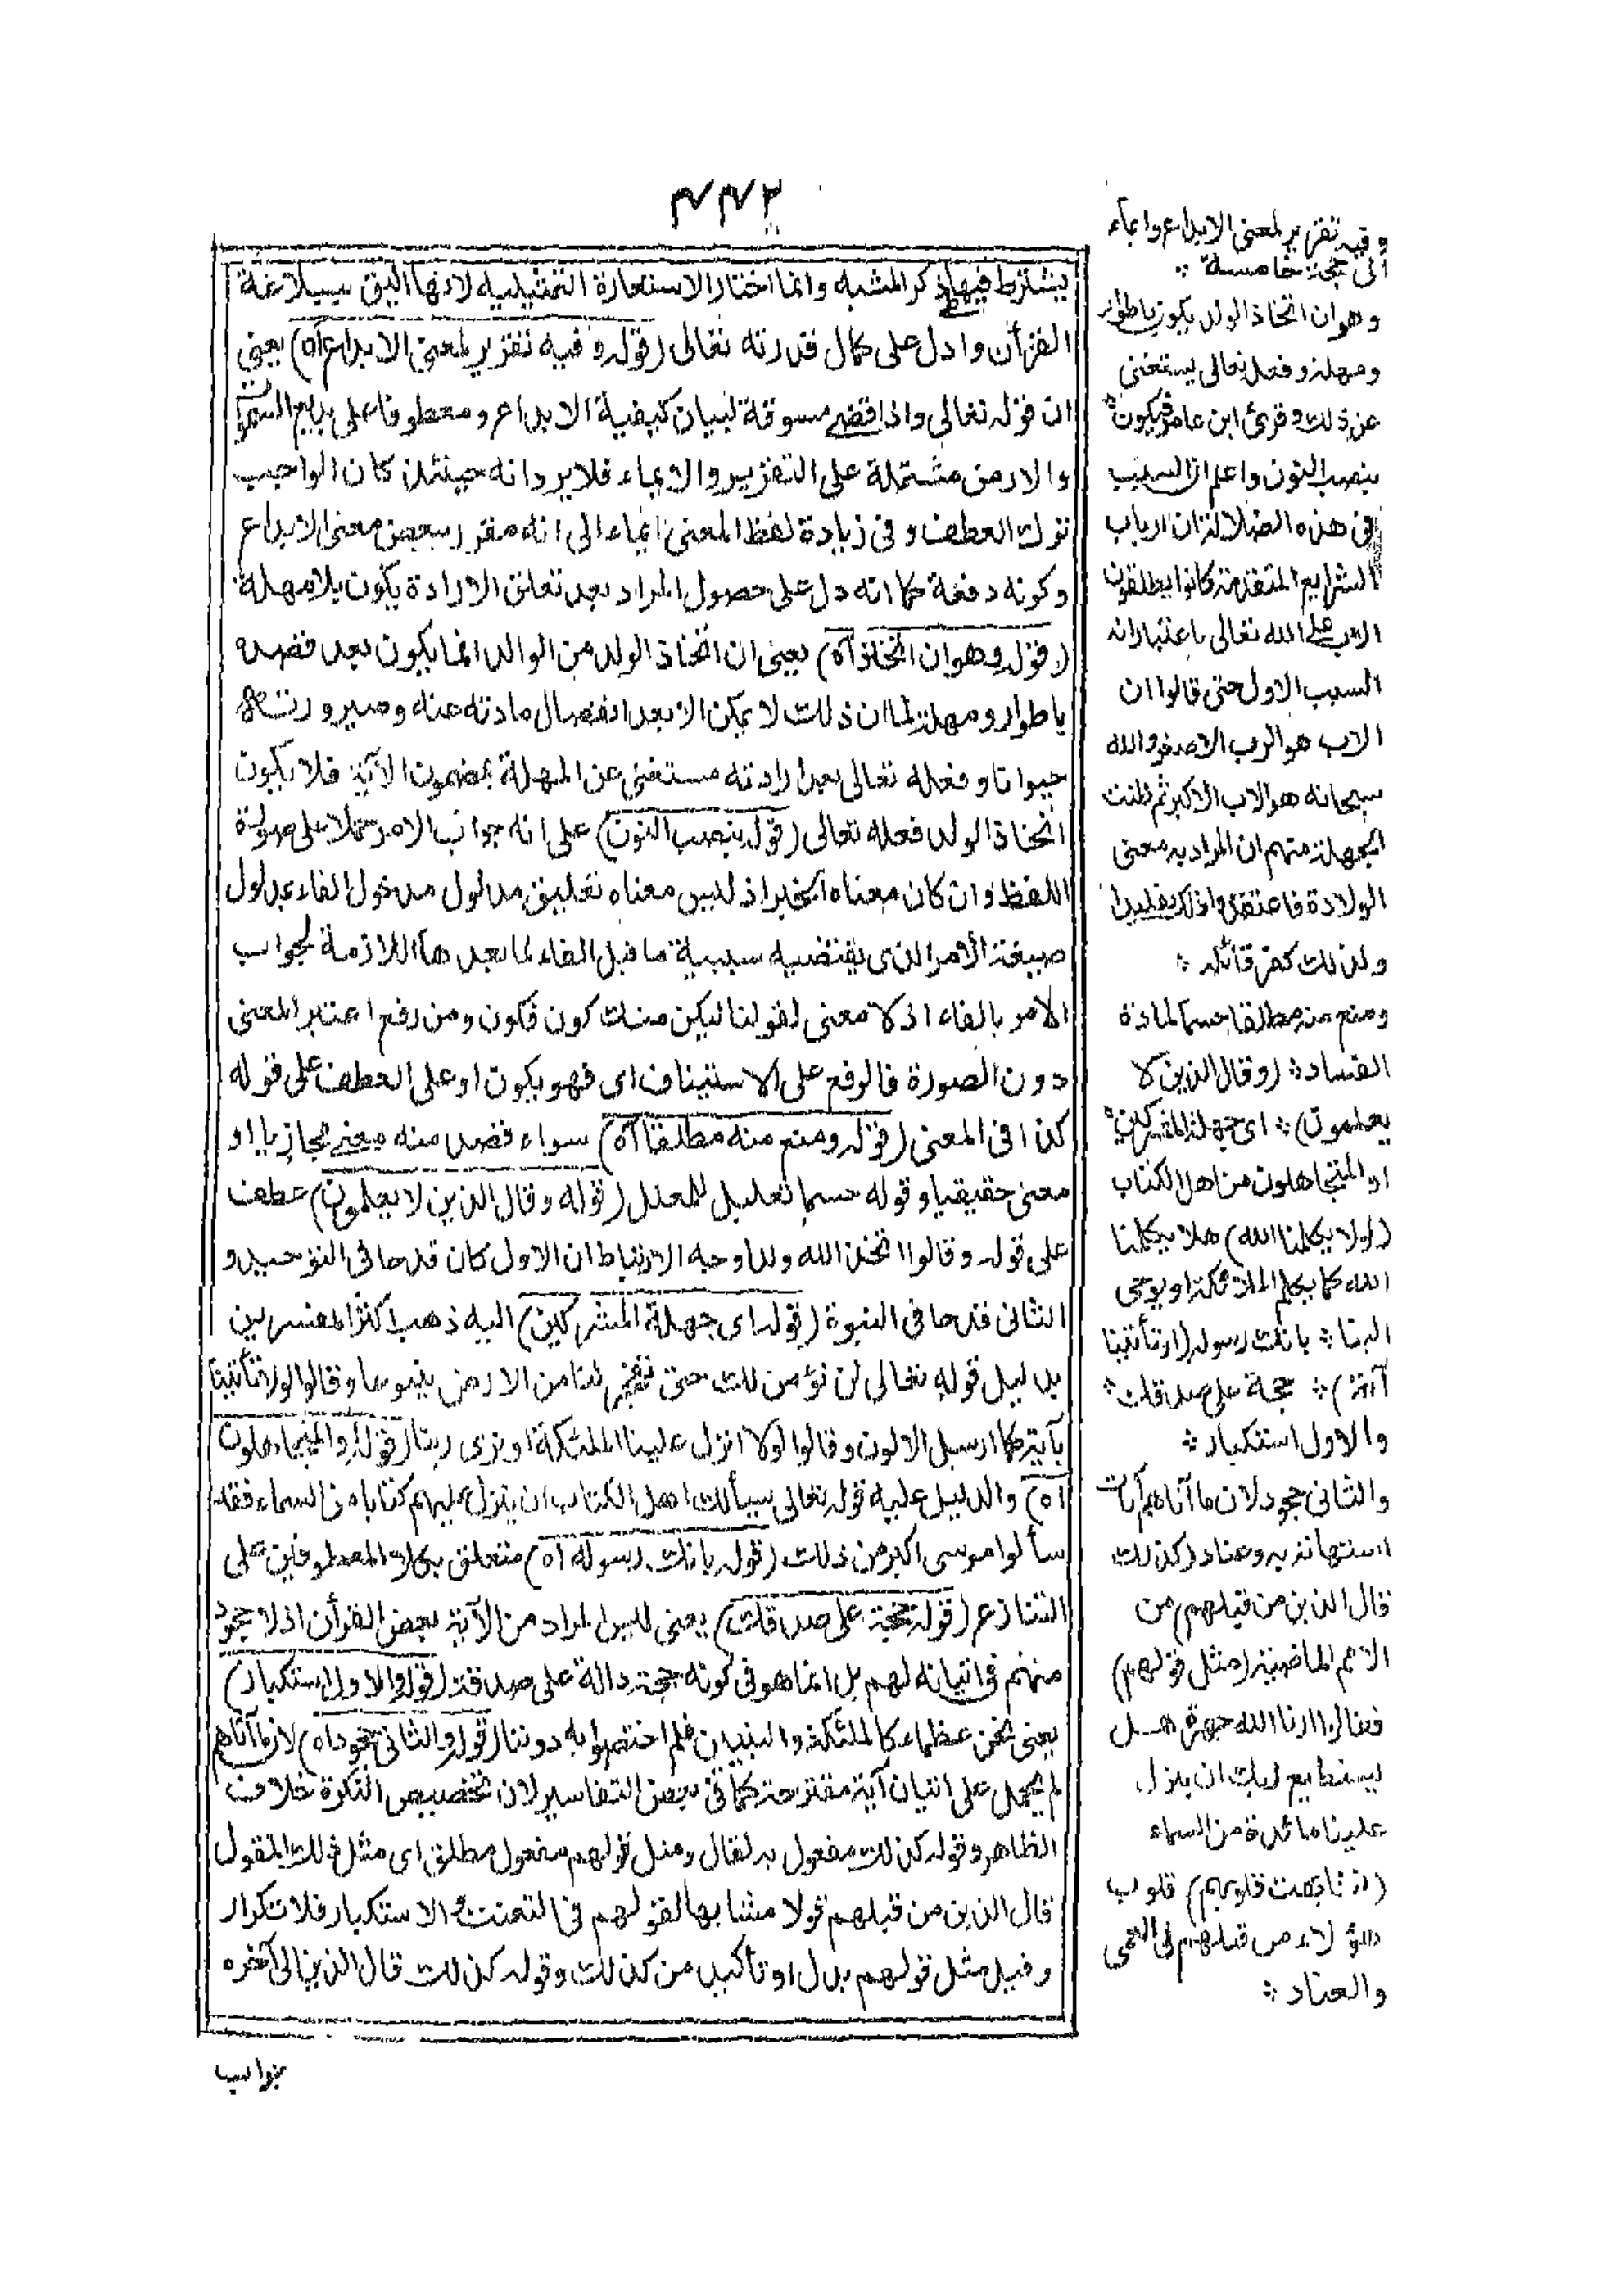 ٤٤٣
يشترط فيها ذكر المشبه وانما اختار الاستعارة التمثيلية لانها اليق ببلاغة
القرأن وادل على كمال قدرته تعالى (قوله وفيه تقرير لمعنى الابداع اه) يعنى
ان قوله تعالى واذا قضى مسوقة لبيان كيفية الابداع ومعطوفا على بديع السموات
والارض مشتملة على التقرير والايماء فلا يرد انه حينئذ كان الواجب
ترك العطف وفى زيادة لفظ المعنى ايماء الى انه مقرر ببعض معنى الابداع
وكونه دفعة كما انه دل على حصول المراد بعد تعلق الارادة يكون بلا مهلة
(قوله وهو ان اتخاذ اه) يعنى ان اتخاذ الولد من الوالد انما يكون بعد قصده
باطوار ومهلة لما ان ذلك لا يمكن الا بعد انفصال مادته عنه وصيرورته
حيوانا وفعله تعالى بعد ارادته مستغنى عن المهلة بمضمون الآية فلا يكون
اتخاذ الولد فعله تعالى (قوله بنصب النون) على انه جواب الامر حملا على صورة
اللفظ وان كان معناه الخبر اذ ليس معناه تعليق مدلول مدخول الفاء بمدلول
صيغة الامر الذى يقتضيه سببية ما قبل الفاء لما بعدها اللازمة لجواب
الامر بالفاء اذ لا معنى لقولنا ليكن منك كون فكون ومن رفع اعتبر المعنى
دون الصورة فالرفع على الاستيناف اى فهو يكون او على العطف على قوله
كن اق المعنى (قوله ومنع منه مطلقا اه) سواء قصد منه معنى مجازيا او
معنى حقيقيا وقوله حسما تعليل للمعلل (قوله وقال الذين لا يعلمون) عطف
على قوله وقالوا اتخذ الله ولدا وجه الارتباط ان الاول كان قدحا فى التوحيد و
الثانى قدحا فى النبوة (قوله اى جهلة المشركين) اليه ذهب اكثر المفسرين
بدليل قوله تعالى لن نؤمن لك حتى تفجر لنا من الارض ينبوعا وقالوا لولا تأتينا
بآية كما ارسل الاولون وقالوا لولا انزل علينا الملئكة او نرى ربنا (قوله والمتجاهلون
اه) والدليل عليه قوله تعالى يسألك اهل الكتاب ان ينزل عليهم كتابا من السماء فقد
سألوا موسى اكبر من ذلك (قوله بانك رسوله اه) متعلق بكلا المعطوفين على
التنازع (قوله حجة على صدقك) يعنى ليس المراد من الآية بعض القرأن اذ لا جحود
منهم فى اتيانه لهم بل انما هو فى كونه حجة دالة على صدقه (قوله والاول استكبار)
يعنى نحن عظماء كالملئكة والنبيين فلم اختصوا به دوننا (قوله والثانى جحود اه) لان ما آتاهم
لم يحمل على اتيان آية مقترحة كما فى بعض التفاسير لان تخصيص النكرة خلاف
الظاهر وقوله كذلك مفعول به لقال ومثل قولهم مفعول مطلق اى مثل ذلك المقول
قال الذين من قبلهم قولا مشابها لقولهم فى التعنت والاستكبار فلا تكرار
وقيل مثل قولهم بدل او تأكيد من كذلك وقوله كذلك قال الذين الى آخره
جواب
وفيه تقرير لمعنى الابداع وايماء
الى حجة خامسة
وهو ان اتخاذ الولد يكون باطوار
ومهلة وفعله تعالى يستغنى
عن ذلك وقرئ ابن عامر فيكون
بنصب النون واعلم ان السبب
فى هذه الضلالة ان ارباب
الشرايع المتقدمة كانوا يطلقون
الاب على الله تعالى باعتبار انه
السبب الاول حتى قالوا ان
الاب هو الرب الاصغر والله
سبحانه هو الاب الاكبر ثم ظنت
الجهلة منهم ان المراد به معنى
الولادة فاعتقدوا ذلك تقليدا
ولذلك كفر قائله
ومنع منه مطلقا حسما لمادة
الفساد (وقال الذين لا
يعلمون) اى جهلة المشركين
او المتجاهلون من اهل الكتاب
(لولا يكلمنا الله) هلا يكلمنا
الله كما يكلم الملائكة او يوحى
الينا بانك رسوله (او تأتينا
آية) حجة على صدقك
والاول استكبار
والثانى جحود لان ما آتاهم آيات
استهانة به وعنادا (كذلك
قال الذين من قبلهم من
الامم الماضية (مثل قولهم)
فقالوا ارنا الله جهرة هل
يستطيع ربك ان ينزل
علينا مائدة من السماء
(تشابهت قلوبهم) قلوب
هؤلاء ومن قبلهم فى العمى
والعناد